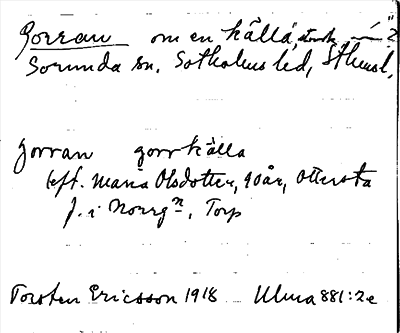 Gorran om en källa, 2
Sorunda sn. Sotholms hd, Sthmsl.
gorran gorrkälla
Uft. Maria Olsdotter, 90 år, Ottersta
f. i Norrgⁿ, Torp
Torsten Ericsson 1918 Ulma 881:2e